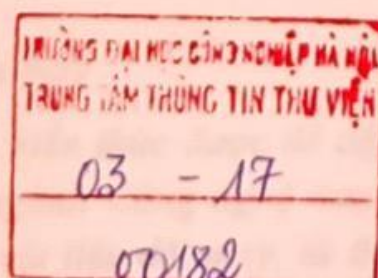 TRƯỜNG ĐẠI HỌC CÔNG NGHIỆP HÀ NỘI
TRUNG TÂM THÔNG TIN THƯ VIỆN
03 - 17
00182